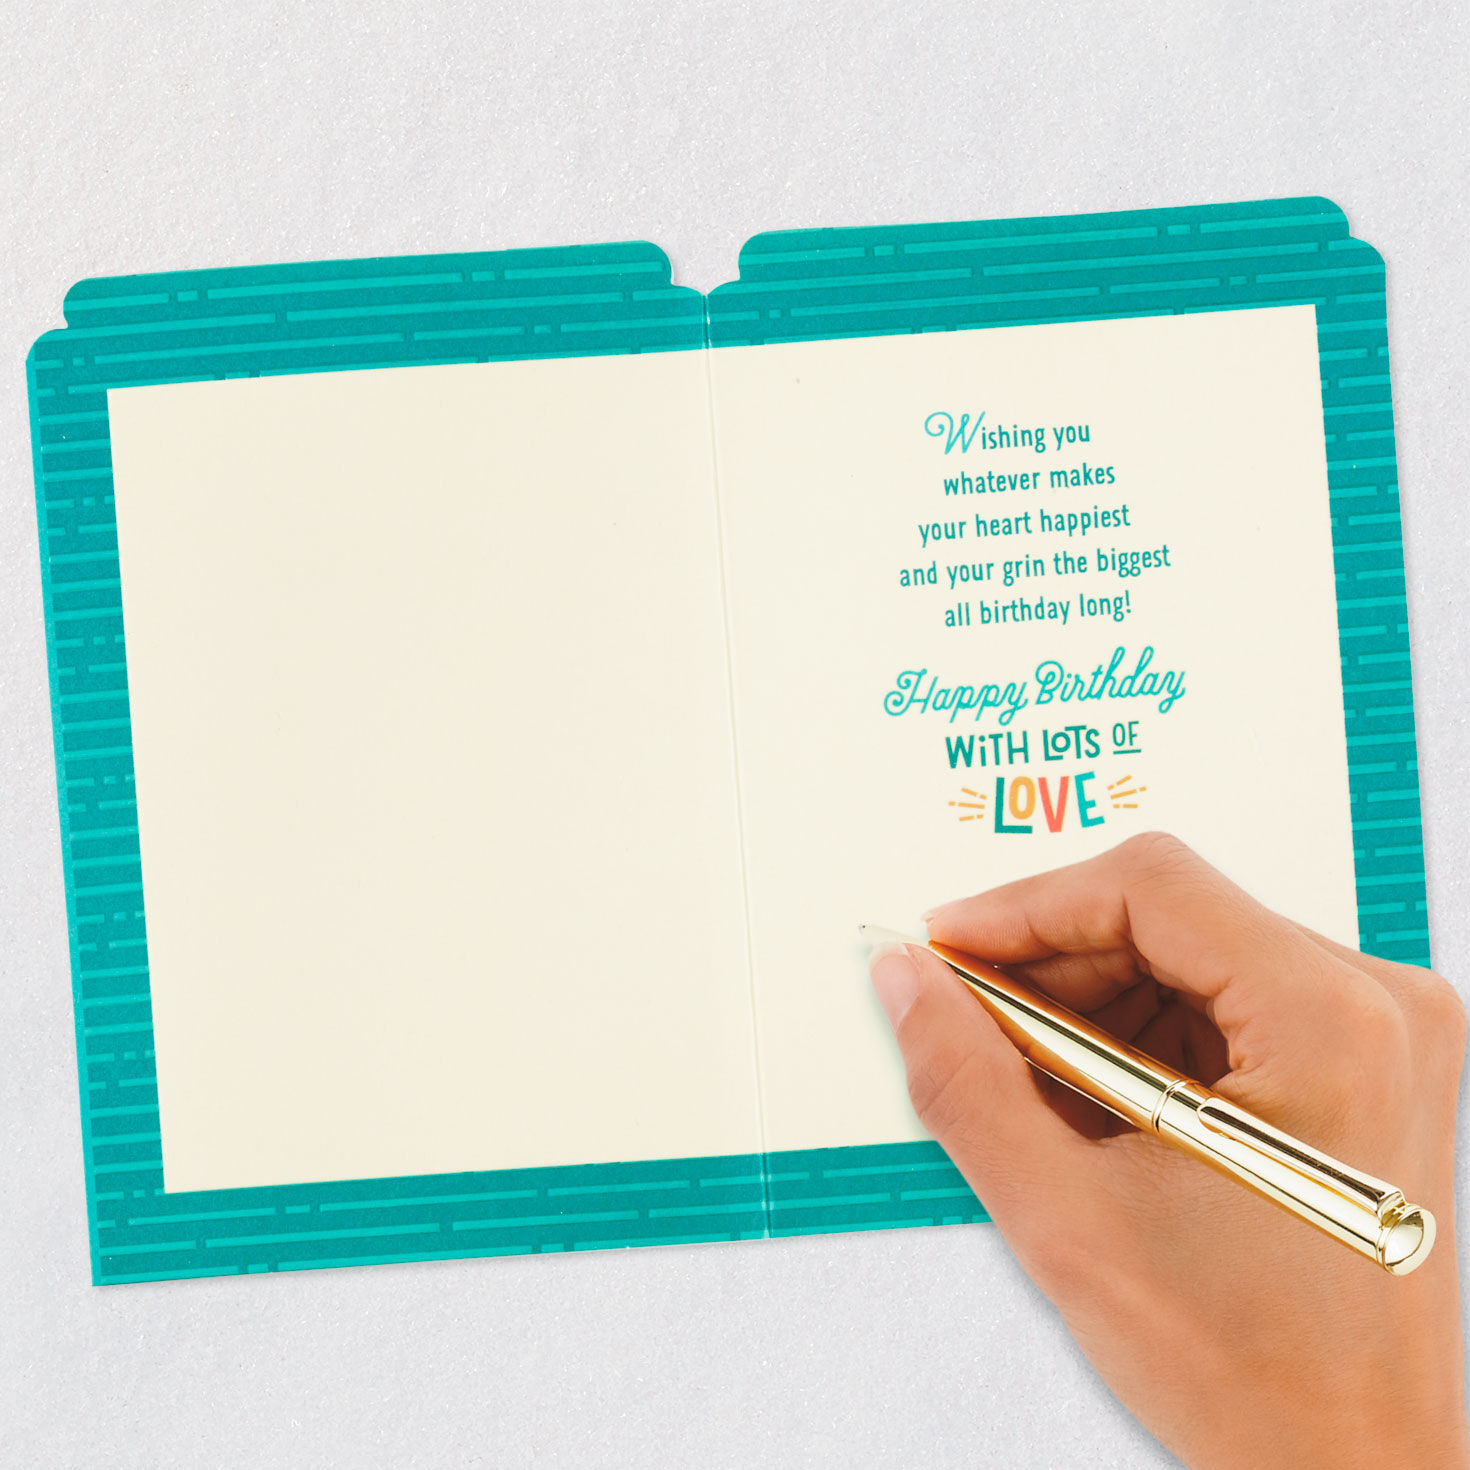 Wishing you
whatever makes
your heart happiest
and your grin the biggest
all birthday long!
Happy Birthday
WiTH LOTS OF
LOVE